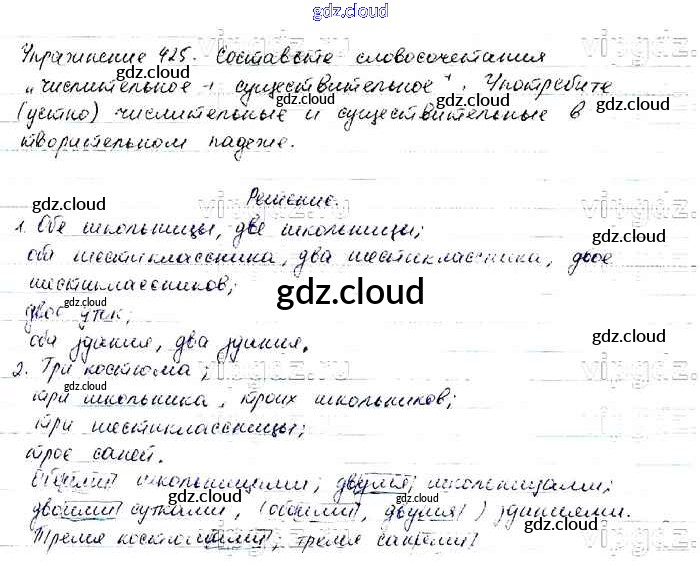 gdz.cloud
Упражнение 425. Составьте словосочетания
gdz.cloud
„числительное + существительное". Употребите
(устно) числительные и существительные в
gdz.cloud
творительном падеже.
gdz.cloud
Решение.
gdz.cloud
1. Обе школьницы, две школьницы;
gdz.cloud
оба шестиклассника, два шестиклассника, двое
gdz.cloud
шестиклассников;
gdz.cloud
двое суток;
gdz.cloud
оба здания, два здания.
2. Три костюма;
gdz.cloud
три школьника, троих школьников;
три шестиклассницы;
gdz.cloud
трое саней.
школьницами; двумя школьницами;
gdz.cloud
двоими сутками, (обоими, двумя) зданиями.
gdz.cloud
Тремя костюмами; тремя санями
gdz.cloud